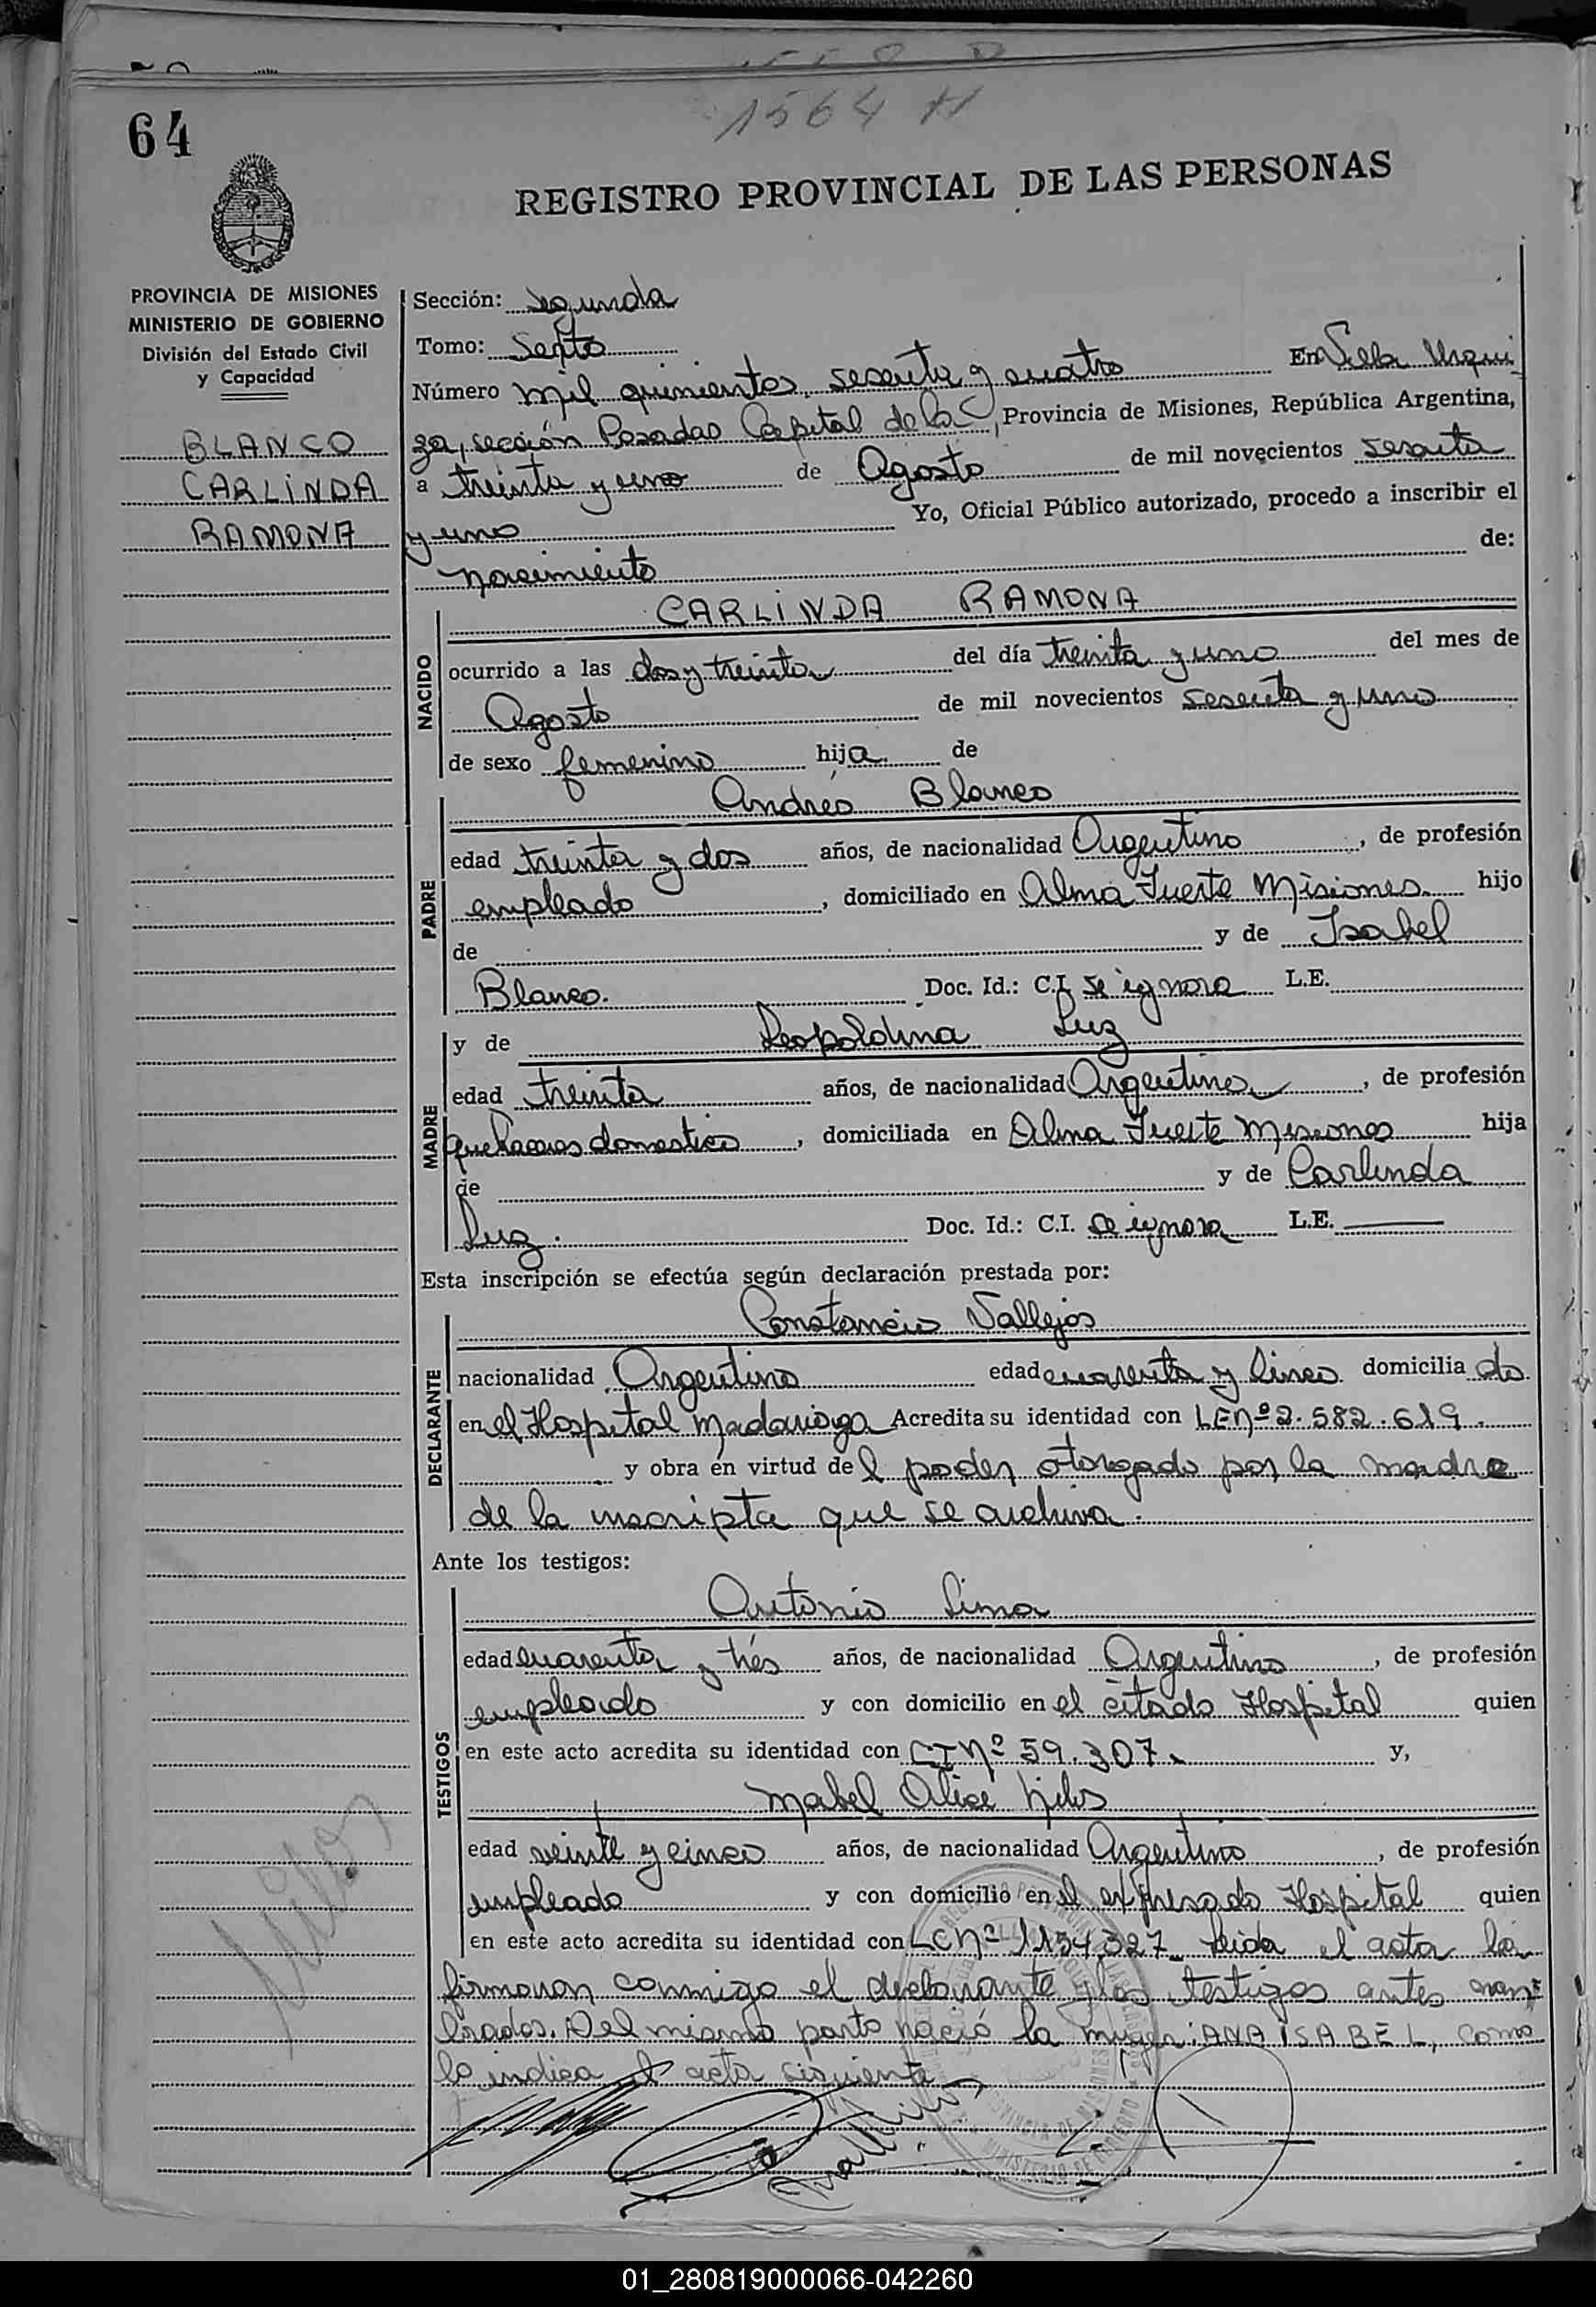 64
1564 H
REGISTRO PROVINCIAL DE LAS PERSONAS
PROVINCIA DE MISIONES
MINISTERIO DE GOBIERNO
División del Estado Civil
y Capacidad
BLANCO
CARLINDA
RAMONA
Sección: segunda
Tomo: Septo
Número mil quinientos sesenta y cuatro En Villa Urqui
za, sección Posadas Capital de la, Provincia de Misiones, República Argentina,
a treinta y uno de Agosto de mil novecientos sesenta
y uno Yo, Oficial Público autorizado, procedo a inscribir el
nacimiento de:
NACIDO
CARLINDA RAMONA
ocurrido a las dos y treinta del día treinta y uno del mes de
Agosto de mil novecientos sesenta y uno
de sexo femenino hija de
PADRE
Andrés Blanco
edad treinta y dos años, de nacionalidad Argentino, de profesión
empleado, domiciliado en Alma Fuerte Misiones hijo
de y de Isabel
Blanco. Doc. Id.: C.I. se ignora L.E.
MADRE
y de Leopoldina Luz
edad treinta años, de nacionalidad Argentina, de profesión
quehaceres domestico, domiciliada en Alma Fuerte Misiones hija
de y de Carlinda
Luz. Doc. Id.: C.I. se ignora L.E.
Esta inscripción se efectúa según declaración prestada por:
DECLARANTE
Constancio Vallejos
nacionalidad Argentino edad cuarenta y cinco domicilia do
en el Hospital Madariaga Acredita su identidad con LE nº 2.582.619.
y obra en virtud del poder otorgado por la madre
de la inscripta que se archiva.
Ante los testigos:
TESTIGOS
Antonio Lima
edad cuarenta y trés años, de nacionalidad Argentino, de profesión
empleado y con domicilio en el citado Hospital quien
en este acto acredita su identidad con CI Nº 59.307. y,
Mabel Alice
edad veinte y cinco años, de nacionalidad Argentino, de profesión
empleado y con domicilio en el expresado Hospital quien
en este acto acredita su identidad con LC nº 1154327 Leida el acta la
firmaron conmigo el declarante y los testigos antes nom=
brados. Del mismo parto nació la mujer: ANA ISABEL, como
lo indica el acta siguiente
01_280819000066-042260